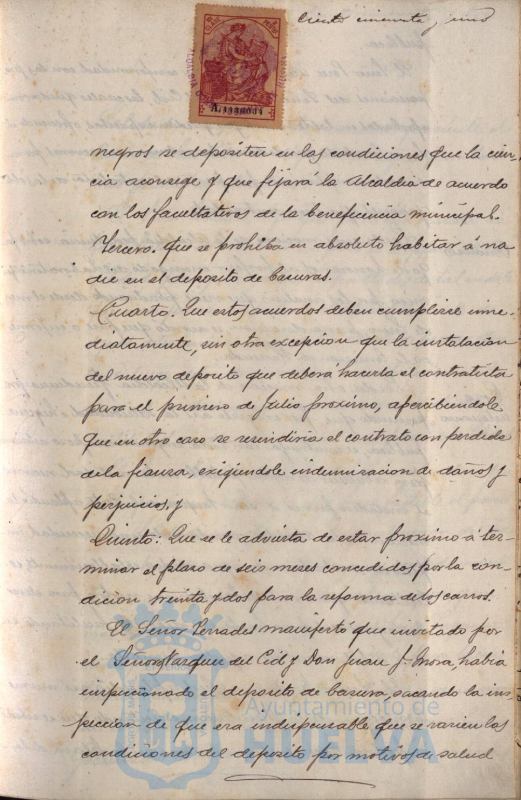 Ciento cincuenta y uno
A.1136034
negros se depositen en las condiciones que la cien-
cia aconsege y que fijará la Alcaldia de acuerdo
con los facultativos de la beneficencia municipal.
Tercero. Que se prohiba en absoluto habitar á na
die en el deposito de basuras.
Cuarto. Que estos acuerdos deben cumplirse inme-
diatamente, sin otra excepcion que la instalacion
del nuevo deposito que deberá hacerla el contratista
para el primero de Julio proximo, apercibiendole
que en otro caso se rescindiria el contrato con perdida
de la fianza, exigiendole indemnizacion de daños y
perjuicios, y
Quinto: Que se le advierta de estar proximo á ter-
minar el plazo de seis meses concedidos por la con-
dicion treinta y dos para la reforma de los carros.
El Señor Terrades manifestó que invitado por
el Señor Vazquez del Cid y Don Juan J. Mora, habia
inspecionado el deposito de basura, sacando la ins-
peccion de que era indispensable que se varien las
condiciones del deposito por motivos de salud
Ayuntamiento de
HUELVA